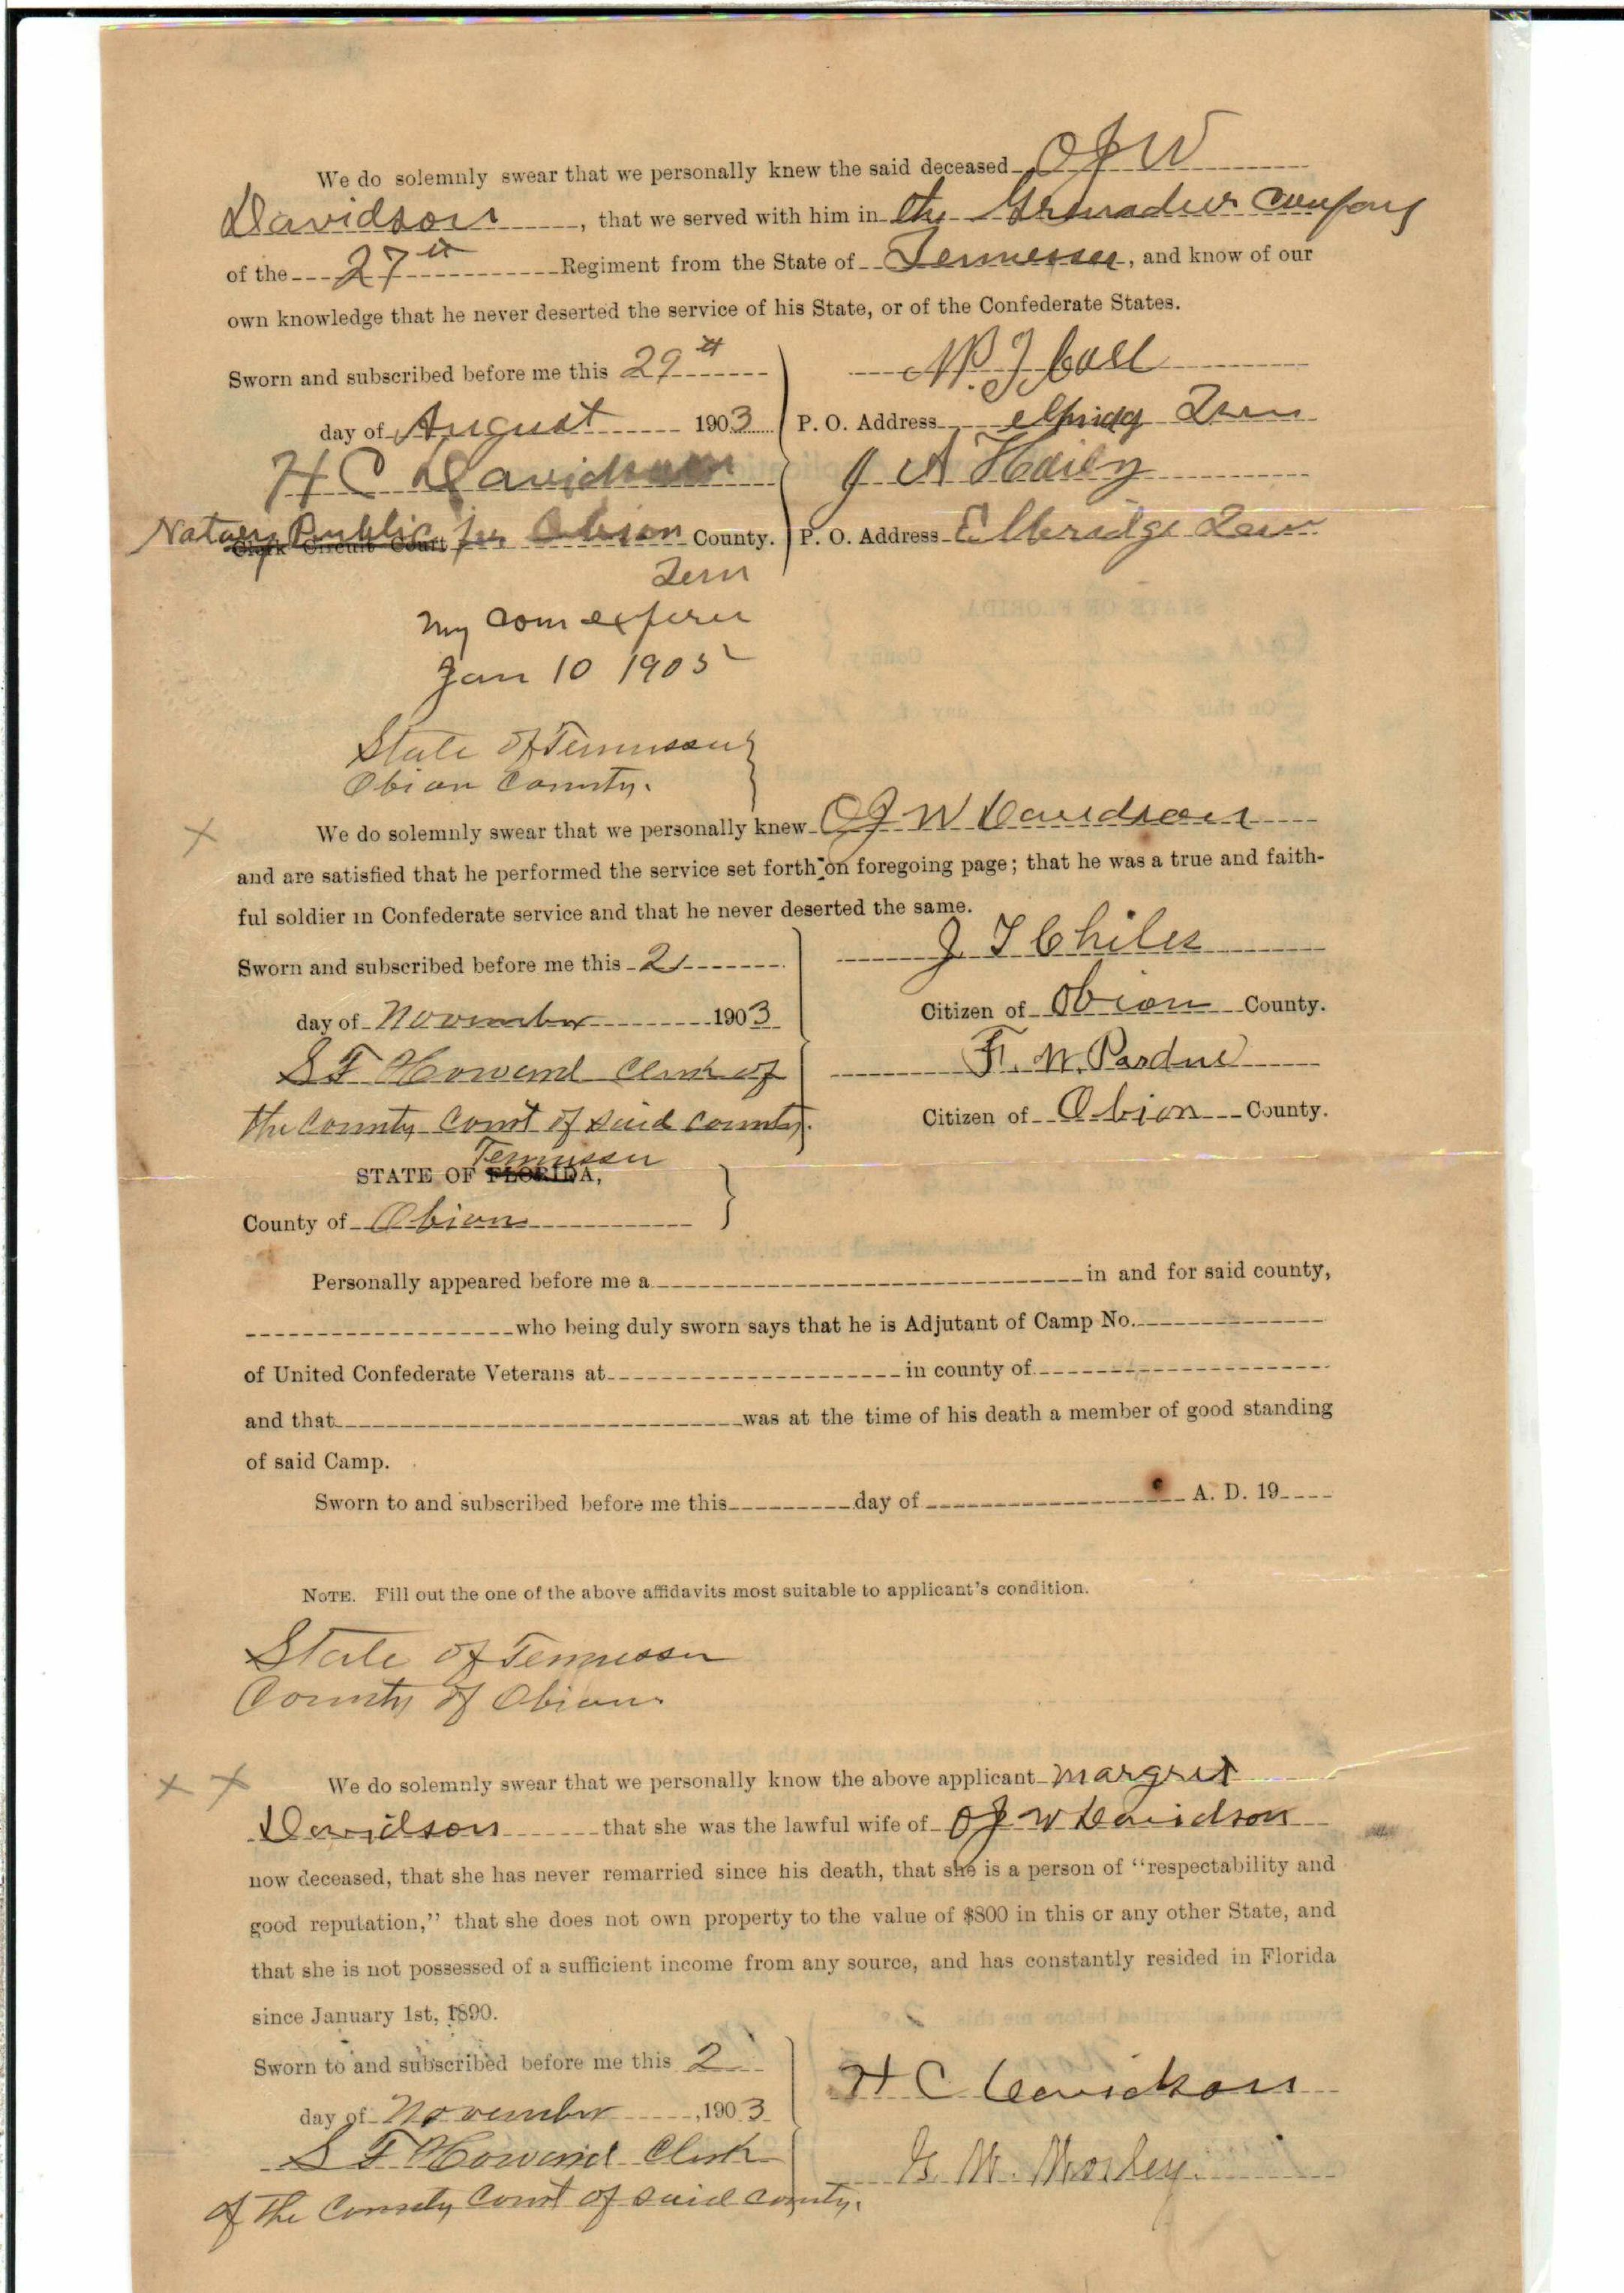 We do solemnly swear that we personally knew the said deceased O J W
Davidson, that we served with him in the Grenadier Company
of the 27th Regiment from the State of Tennessee, and know of our
own knowledge that he never deserted the service of his State, or of the Confederate States.
Sworn and subscribed before me this 29th
day of August 1903
H C Davidson
Notary Public for Obion County.
Clerk Circuit Court
Tenn
J A
P. O. Address Tenn
P. O. Address Elbridge Tenn
My Com expires
Jan 10 1905
State of Tennessee
Obion County.
x We do solemnly swear that we personally knew O J W Davidson
and are satisfied that he performed the service set forth on foregoing page; that he was a true and faith-
ful soldier in Confederate service and that he never deserted the same.
Sworn and subscribed before me this 2
day of November 1903
S F Howard Clerk of
the County Court of said county.
J. T Chiles
Citizen of Obion County.
F. W. Pardue
Citizen of Obion County.
Tennessee
STATE OF FLORIDA,
County of Obion
Personally appeared before me a in and for said county,
who being duly sworn says that he is Adjutant of Camp No.
of United Confederate Veterans at in county of
and that was at the time of his death a member of good standing
of said Camp.
Sworn to and subscribed before me this day of A. D. 19
NOTE. Fill out the one of the above affidavits most suitable to applicant's condition.
State of Tennessee
County of Obion
x x We do solemnly swear that we personally know the above applicant Margret
Davidson that she was the lawful wife of O J W Davidson
now deceased, that she has never remarried since his death, that she is a person of "respectability and
good reputation," that she does not own property to the value of $800 in this or any other State, and
that she is not possessed of a sufficient income from any source, and has constantly resided in Florida
since January 1st, 1890.
Sworn to and subscribed before me this 2
day of November, 1903
S F Howard Clerk
of the County Court of said county.
H C Davidson
G. W. Mosley